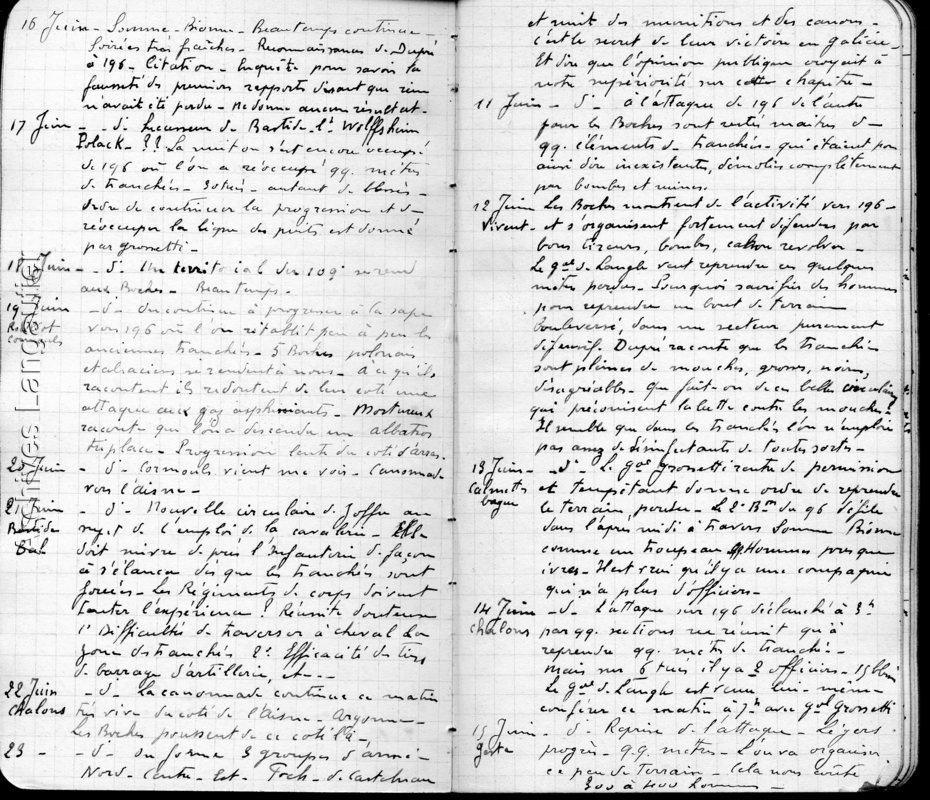 16 Juin - Somme-Bionne - Beau temps continue -
Soirées très fraîches - Reconnaissances de Dupré
à 196 - Citation - Enquête pour savoir la
fausseté des premiers rapports disant que rien
n'avait été perdu - Ne donne aucun résultat -
17 Juin - d° - Successeur de Bastide - Lt Wolffsheim
Polack - ?? La nuit on s'est encore occupé
de 196 où l'on a réoccupé qq. mètres
de tranchées - 30 tués - autant de blessés -
Ordre de continuer la progression et de
réoccuper la ligne des puits est donné
par Grossetti -
18 Juin - d° - Un territorial du 109e se rend
aux Boches - Beau temps -
19 Juin - d° - On continue à progresser à la sape
vers 196 où l'on rétablit peu à peu les
anciennes tranchées - 5 Boches polonais
et alsaciens se rendent à nous - A ce qu'ils
racontent ils redoutent de leur coté une
attaque aux gaz asphyxiants -
raconte que l'on a descendu un albatros
triplace - Progression lente du coté d'Arras -
20 Juin - d° - Cormouls vient me voir - Canonnade
vers l'Aisne -
21 Juin - d° - Nouvelle circulaire de Joffre au
Bastide sujet de l'emploi de la cavalerie - Elle
Bal doit suivre de près l'Infanterie de façon
à s'élancer dès que les tranchées sont
forcées - Les Régiments de corps doivent
tenter l'expérience ! Réussite douteuse
1° Difficulté de traverser à cheval la
zone des tranchées 2° Efficacité des tirs
de barrage d'artillerie, etc - -
22 Juin - d° - La canonnade continue ce matin
Chalons très vive du coté de l'Aisne - Argonne -
Les Boches poussent de ce coté là -
23 - - d° - On forme 3 groupes d'armée -
Nord - Centre - Est - Foch - de Castelnau
Archives Languillier
et nuit des munitions et des canons -
c'est le secret de leur victoire en Galicie -
Et dire que l'opinion publique croyait à
notre supériorité sur ce chapitre -
11 Juin - d° - A l'attaque de 196 de l'autre
jour les Boches sont restés maîtres de
qq. éléments de tranchées - qui étaient pour
ainsi dire inexistantes, démolies complètement
par bombes et mines.
12 Juin Les Boches montrent de l'activité vers 196 -
Vivent - et s'organisent fortement défendus par
bons tireurs, bombes, canon revolver -
Le Gal de Langle veut reprendre ces quelques
mètres perdus - Pourquoi sacrifier des hommes
pour reprendre un bout de terrain
bouleversé, dans un secteur purement
défensif. Dupré raconte que les tranchées
sont pleines de mouches, grosses, noires,
désagréables - Que fait-on de ces belles circulaires
qui préconisent la lutte contre les mouches -
Il semble que dans les tranchées l'on n'emploie
pas assez de désinfectants de toutes sortes -
13 Juin - d° - Le Gal Grossetti rentre de permission
Calmettes et tempêtant donne ordre de reprendre
bague le terrain perdu - Le 2e Bon du 96 défile
dans l'après midi à travers Somme Bionne
comme un troupeau d'Hommes presque
ivres - Il est vrai qu'il y a une compagnie
qui n'a plus d'officiers -
14 Juin - d° - L'attaque sur 196 déclanché à 3h
Chalons par qq. sections ne réussit qu'à
reprendre qq. mètres de tranchée -
mais sur 6 tués il y a 2 officiers - 15 blessés
Le Gal de Langle est venu lui-même
conférer ce matin à 7h avec Gal Grossetti
15 Juin - d° - Reprise de l'attaque - Légers
progrès - qq. mètres - L'on va organiser
ce peu de terrain - Cela nous coûte
300 à 400 hommes -